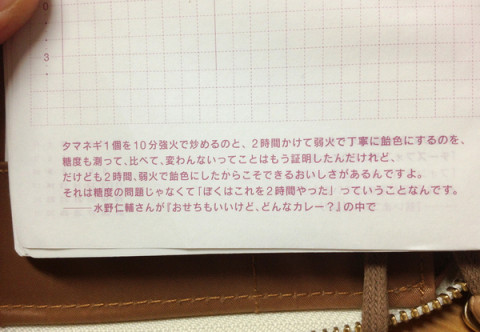 3
タマネギ1個を10分強火で炒めるのと、2時間かけて弱火で丁寧に飴色にするのを、
糖度も測って、比べて、変わんないってことはもう証明したんだけれど、
だけども2時間、弱火で飴色にしたからこそできるおいしさがあるんですよ。
それは糖度の問題じゃなくて「ぼくはこれを2時間やった」っていうことなんです。
――水野仁輔さんが『おせちもいいけど、どんなカレー?』の中で